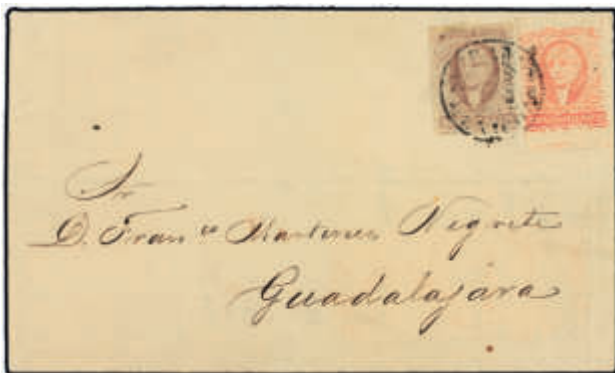 Sr
D. Fran.co Martinez Negrete
Guadalajara